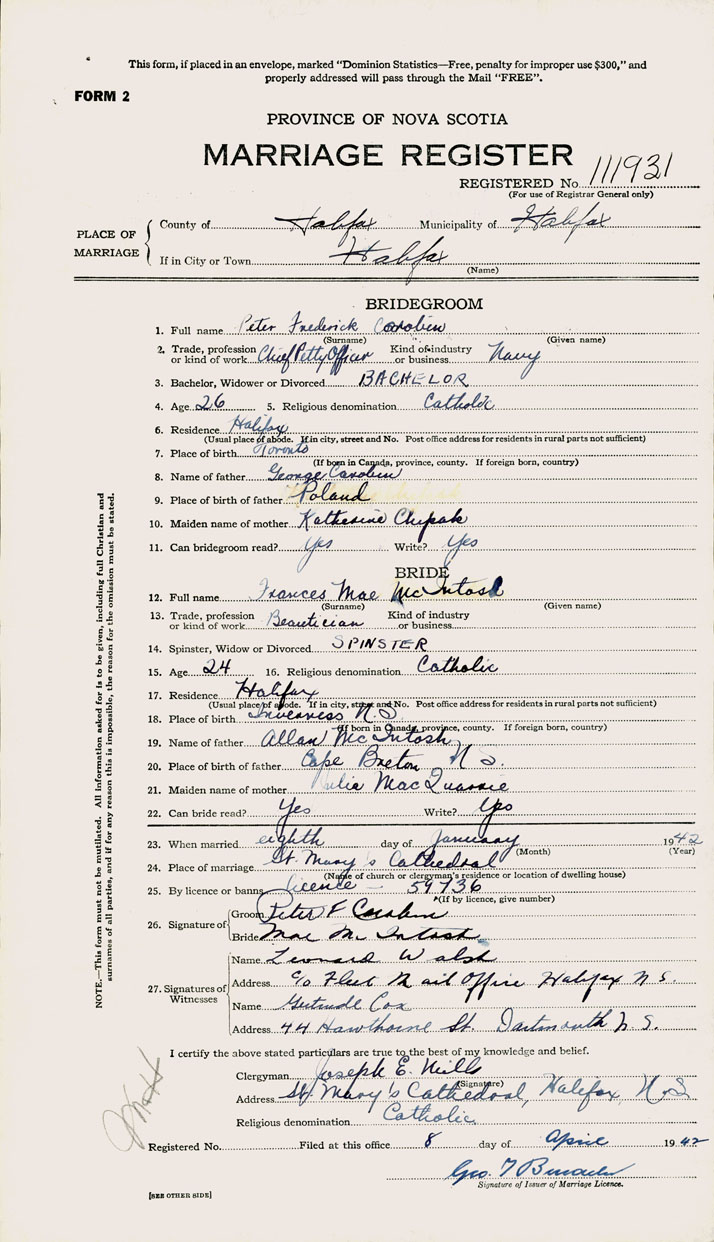 This form, if placed in an envelope, marked "Dominion Statistics—Free, penalty for improper use $300," and
properly addressed will pass through the Mail "FREE".
FORM 2
PROVINCE OF NOVA SCOTIA
MARRIAGE REGISTER
REGISTERED No. 111931
(For use of Registrar General only)
PLACE OF MARRIAGE
County of Halifax Municipality of Halifax
If in City or Town Halifax
(Name)
BRIDEGROOM
1. Full name Peter Frederick
(Surname) (Given name)
2. Trade, profession or kind of work Chief Petty Officer Kind of industry or business Navy
3. Bachelor, Widower or Divorced BACHELOR
4. Age 26 5. Religious denomination Catholic
6. Residence Halifax
(Usual place of abode. If in city, street and No. Post office address for residents in rural parts not sufficient)
7. Place of birth Toronto
(If born in Canada, province, county. If foreign born, country)
8. Name of father George
9. Place of birth of father Poland
10. Maiden name of mother Katherine
11. Can bridegroom read? Yes Write? Yes
BRIDE
12. Full name Frances Mae McIntosh
(Surname) (Given name)
13. Trade, profession or kind of work Beautician Kind of industry or business
14. Spinster, Widow or Divorced SPINSTER
15. Age 24 16. Religious denomination Catholic
17. Residence Halifax
(Usual place of abode. If in city, street and No. Post office address for residents in rural parts not sufficient)
18. Place of birth Inverness N.S.
(If born in Canada, province, county. If foreign born, country)
19. Name of father Allan McIntosh
20. Place of birth of father Cape Breton N S.
21. Maiden name of mother Julia MacQuarrie
22. Can bride read? Yes Write? Yes
23. When married eighth day of January 1942
(Month) (Year)
24. Place of marriage St. Mary's Cathedral
(Name of church or clergyman's residence or location of dwelling house)
25. By licence or banns licence — 59736
*(If by licence, give number)
26. Signature of
Groom Peter F
Bride Mae McIntosh
27. Signatures of Witnesses
Name Leonard Walsh
Address c/o Fleet Mail Office Halifax N S.
Name Gertrude Cox
Address 44 Hawthorne St. Dartmouth N.S.
I certify the above stated particulars are true to the best of my knowledge and belief.
Clergyman Joseph E. Mills
(Signature)
Address St. Mary's Cathedral, Halifax, N.S
Religious denomination Catholic
Registered No. Filed at this office 8 day of April 1942
Geo. T
Signature of Issuer of Marriage Licence.
[SEE OTHER SIDE]
NOTE.—This form must not be mutilated. All information asked for is to be given, including full Christian and
surnames of all parties, and if for any reason this is impossible, the reason for the omission must be stated.